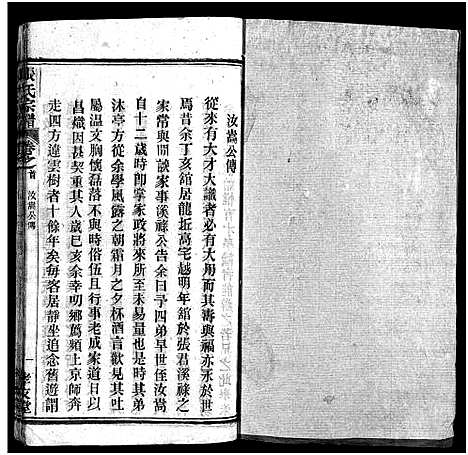 汝嵩公傳
從來有大才大識者必有大用而其壽與福亦永於世
焉昔余丁亥舘居龍折高宅越明年舘於張君溪祿公
家常與閒談家事溪祿公告余曰予四弟早世侄汝嵩
自十二歲時卽掌家政將來所至未易量也是時其
沐亭方從余學風露之朝霜月之夕杯酒言歡見其吐
屬温文胸懷磊落不與時俗伍且行事老成家道日以
昌熾因甚契重其人歲巳亥余幸明鄉薦頻上京師奔
走四方違雲樹者十餘年矣每客居靜坐追念舊遊開
張氏宗譜
卷之首 汝嵩公傳
一
孝友堂